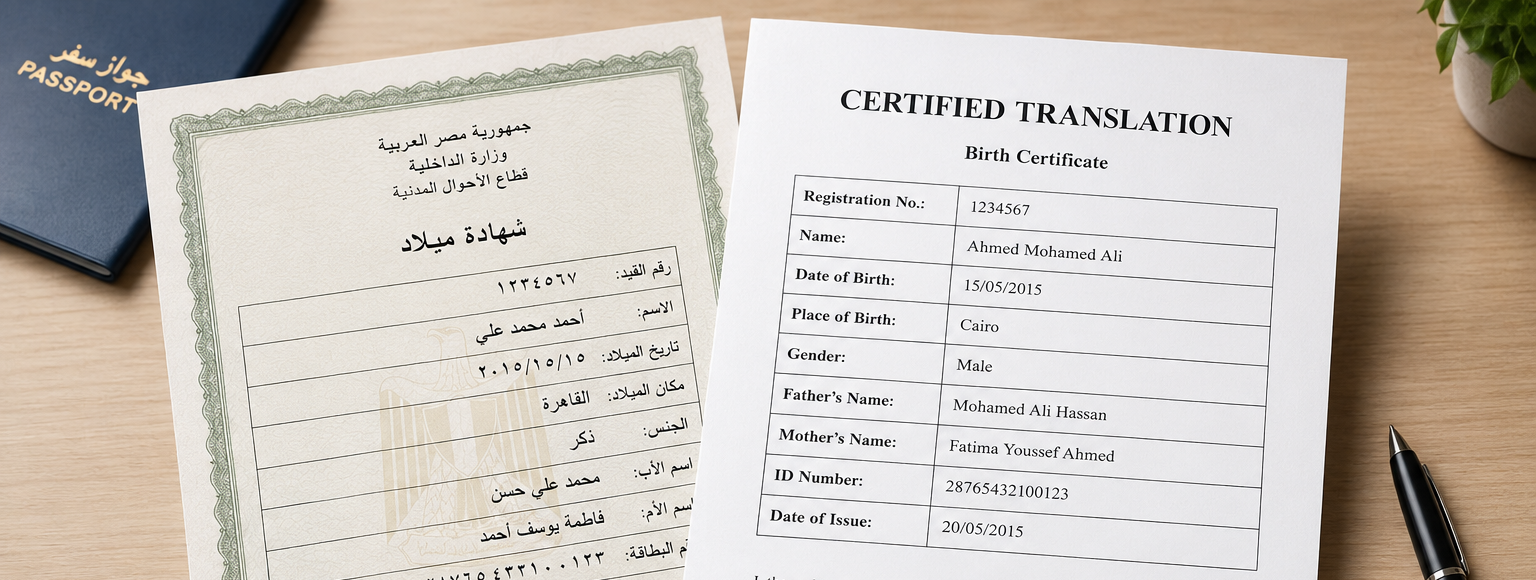 جواز سفر
PASSPORT
جمهورية مصر العربية
وزارة الداخلية
قطاع الأحوال المدنية
شهادة ميلاد
رقم القيد: ١٢٣٤٥٦٧
الاسم: أحمد محمد علي
تاريخ الميلاد: ٢٠١٥/١٥/١٥
مكان الميلاد: القاهرة
الجنس: ذكر
اسم الأب: محمد علي حسن
اسم الأم: فاطمة يوسف أحمد
البطاقة:
CERTIFIED TRANSLATION
Birth Certificate
Registration No.: 1234567
Name: Ahmed Mohamed Ali
Date of Birth: 15/05/2015
Place of Birth: Cairo
Gender: Male
Father's Name: Mohamed Ali Hassan
Mother's Name: Fatima Youssef Ahmed
ID Number: 28765432100123
Date of Issue: 20/05/2015